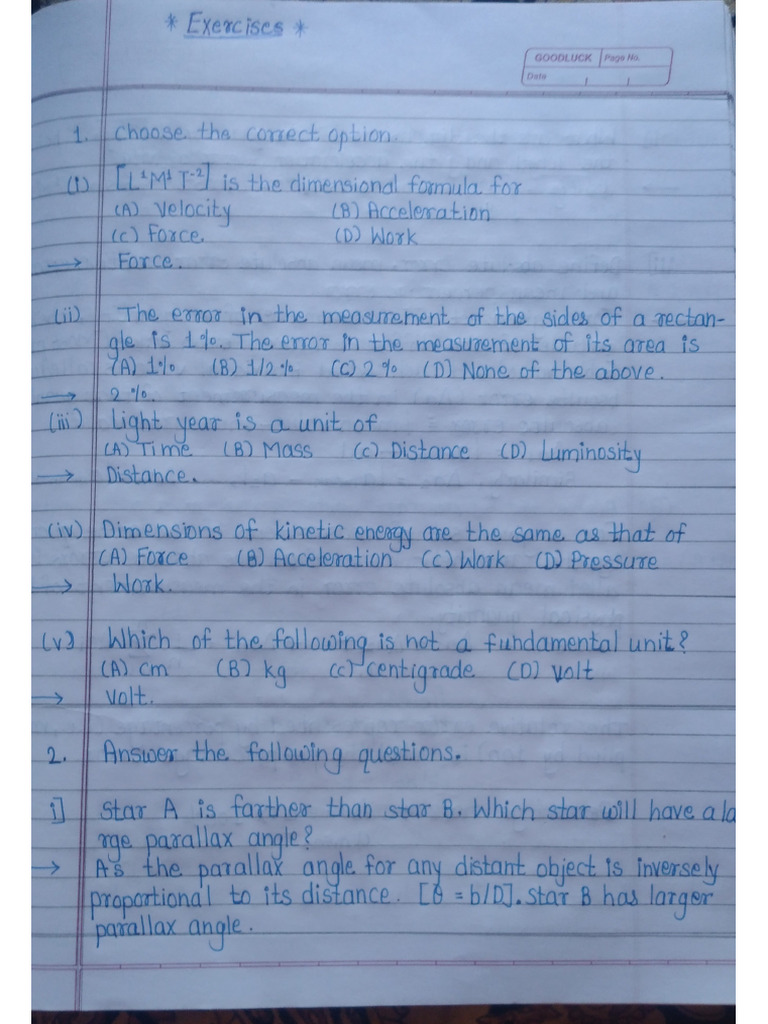 * Exercises *
GOODLUCK Page No.
Date
1. Choose the correct option.
(i) [L¹M¹T⁻²] is the dimensional formula for
(A) Velocity (B) Acceleration
(C) Force. (D) Work
→ Force.
(ii) The error in the measurement of the sides of a rectan-
gle is 1%. The error in the measurement of its area is
(A) 1% (B) 1/2% (C) 2% (D) None of the above.
→ 2%.
(iii) Light year is a unit of
(A) Time (B) Mass (C) Distance (D) Luminosity
→ Distance.
(iv) Dimensions of kinetic energy are the same as that of
(A) Force (B) Acceleration (C) Work (D) Pressure
→ Work.
(v) Which of the following is not a fundamental unit?
(A) cm (B) kg (C) centigrade (D) volt
→ volt.
2. Answer the following questions.
i] Star A is farther than star B. Which star will have a la
rge parallax angle?
→ As the parallax angle for any distant object is inversely
proportional to its distance. [θ = b/D]. Star B has larger
parallax angle.